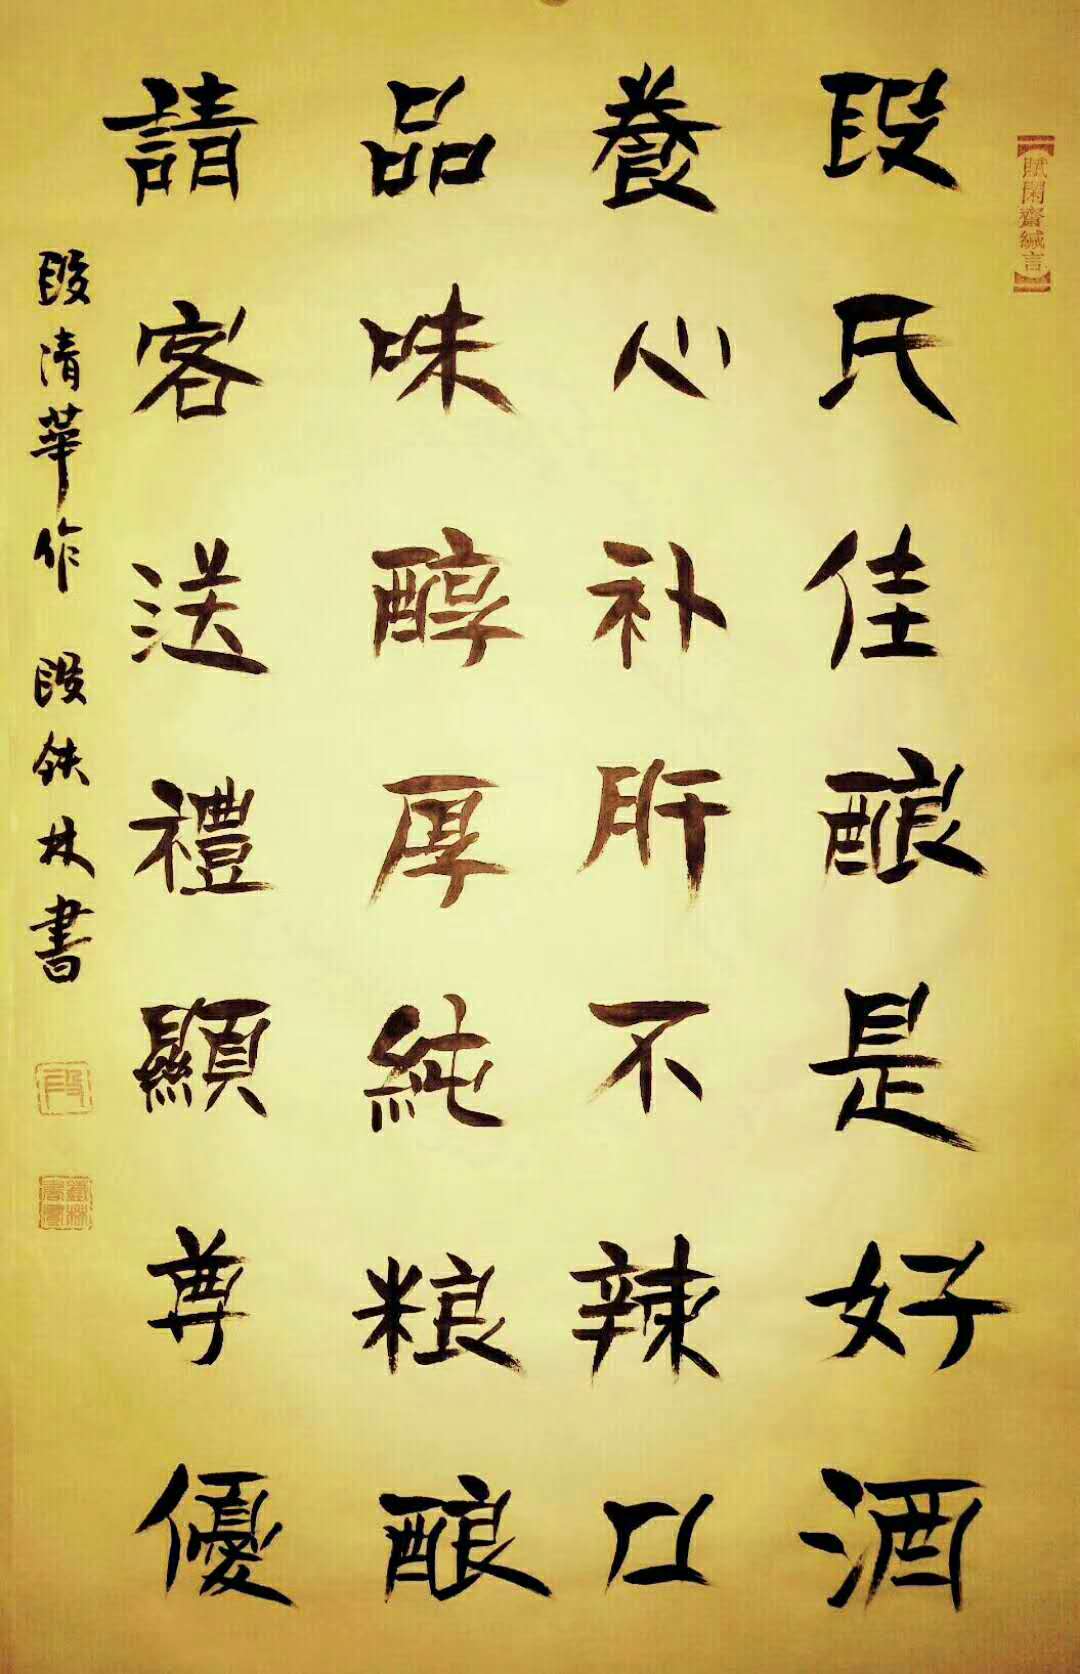 【賦閑齋緘言】
段氏佳酿是好酒
養心补肝不辣口
品味醇厚純粮酿
請客送禮顯尊優
段清華作 段鉄林書
段